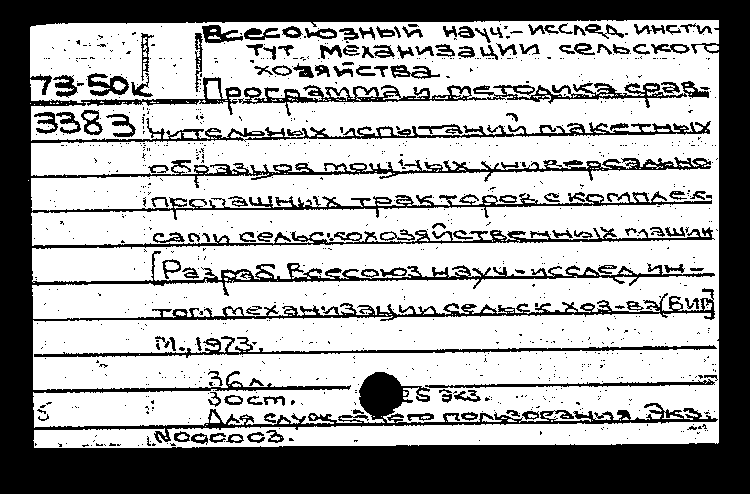 Всесоюзный науч.-исслед. инсти-
тут механизации сельского
хозяйства.
73-50к
Программа и методика срав-
3383
нительных испытаний макетных
образцов мощных универсально
пропашных тракторов с комплек-
сами сельскохозяйственных машин
[Разраб. Всесоюз. науч.-исслед. ин-
том механизации сельск. хоз-ва (ВИМ)]
М., 1973.
36 л.
30 ст. 25 экз.
Для служебного пользования. Экз.
N000003.